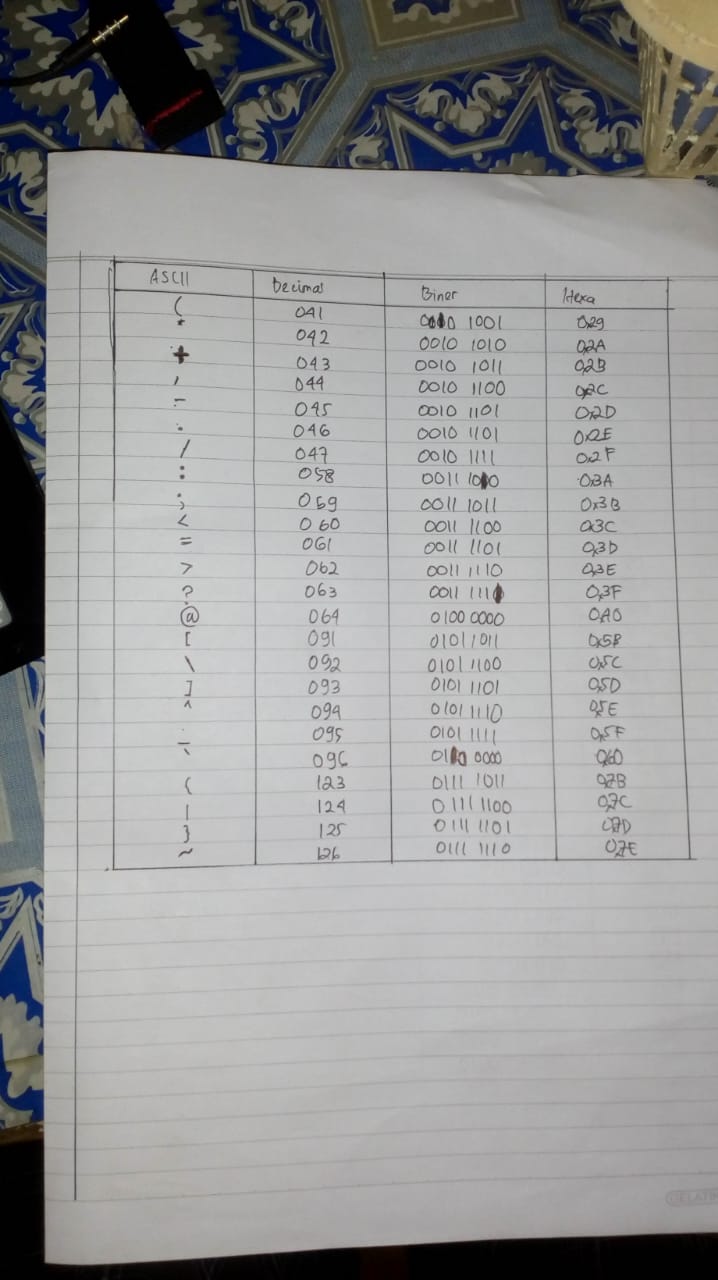 ASCII Decimal Biner Hexa
( 041 0010 1001 0x29
* 042 0010 1010 0x2A
+ 043 0010 1011 0x2B
, 044 0010 1100 0x2C
- 045 0010 1101 0x2D
. 046 0010 1101 0x2E
/ 047 0010 1111 0x2F
: 058 0011 1010 0x3A
; 059 0011 1011 0x3B
< 060 0011 1100 0x3C
= 061 0011 1101 0x3D
> 062 0011 1110 0x3E
? 063 0011 111 0x3F
@ 064 0100 0000 0x40
[ 091 0101 1011 0x5B
\ 092 0101 1100 0x5C
] 093 0101 1101 0x5D
^ 094 0101 1110 0x5E
_ 095 0101 1111 0x5F
` 096 0110 0000 0x60
( 123 0111 1011 0x7B
| 124 0111 1100 0x7C
} 125 0111 1101 0x7D
~ 126 0111 1110 0x7E